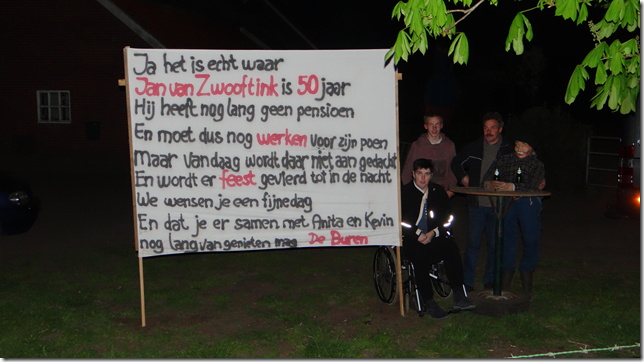 Ja het is echt waar
Jan van Zwooftink is 50 jaar
Hij heeft nog lang geen pensioen
En moet dus nog werken voor zijn poen
Maar vandaag wordt daar niet aan gedacht
En wordt er feest gevierd tot in de nacht
We wensen je een fijne dag
En dat je er samen met Anita en Kevin
nog lang van genieten mag De Buren